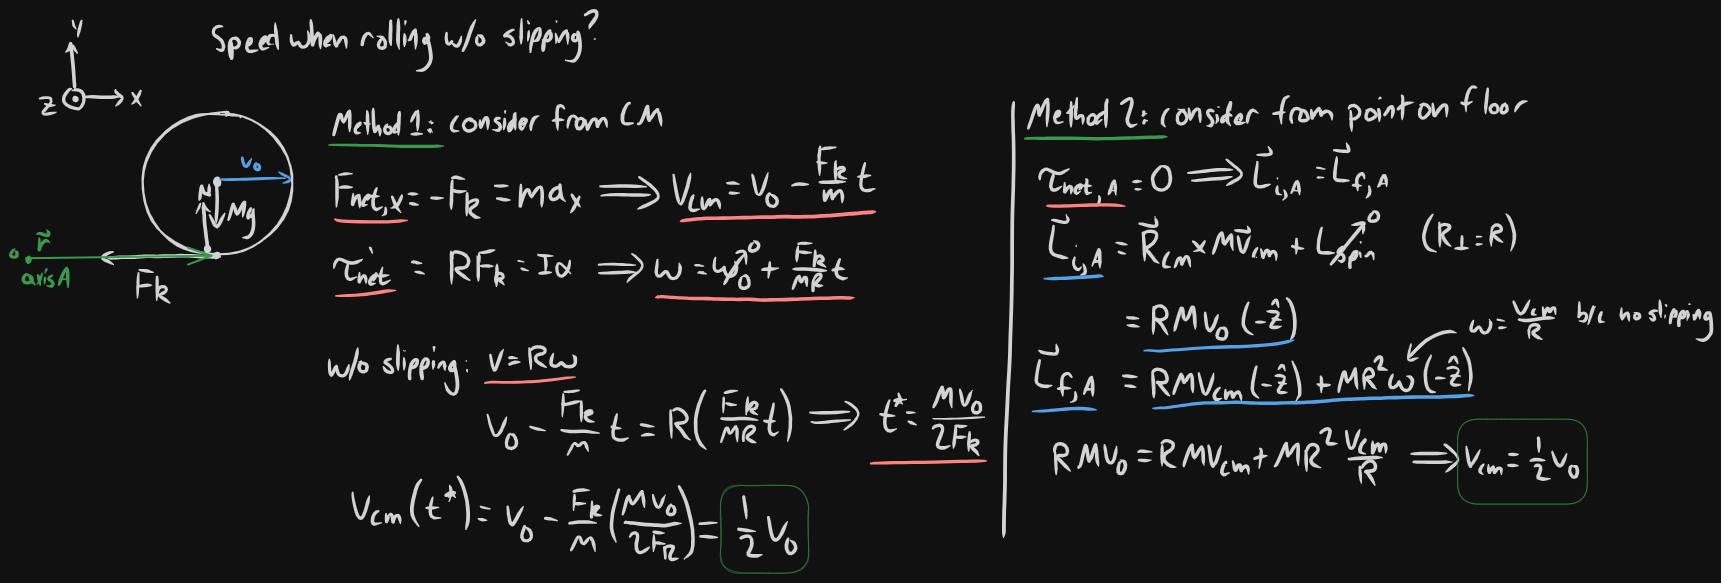 Speed when rolling w/o slipping?
y
z x
v₀
N
Mg
r⃗
axis A
F_k
Method 1: consider from CM
F_net,x = -F_k = ma_x ⟹ V_cm = V₀ - F_k/m t
τ_net = RF_k = Iα ⟹ ω = ω₀ 0 + F_k/MR t
w/o slipping: v = Rω
V₀ - F_k/m t = R(F_k/MR t) ⟹ t* = MV₀/2F_k
V_cm(t*) = V₀ - F_k/m (MV₀/2F_k) = 1/2 V₀
Method 2: consider from point on floor
τ_net,A = 0 ⟹ L⃗_i,A = L⃗_f,A
L⃗_i,A = R⃗_cm × Mv⃗_cm + L_spin 0 (R_⊥ = R)
= RMV₀ (-ẑ)
ω = V_cm/R b/c no slipping
L⃗_f,A = RMV_cm (-ẑ) + MR²ω (-ẑ)
RMV₀ = RMV_cm + MR² V_cm/R ⟹ V_cm = 1/2 V₀